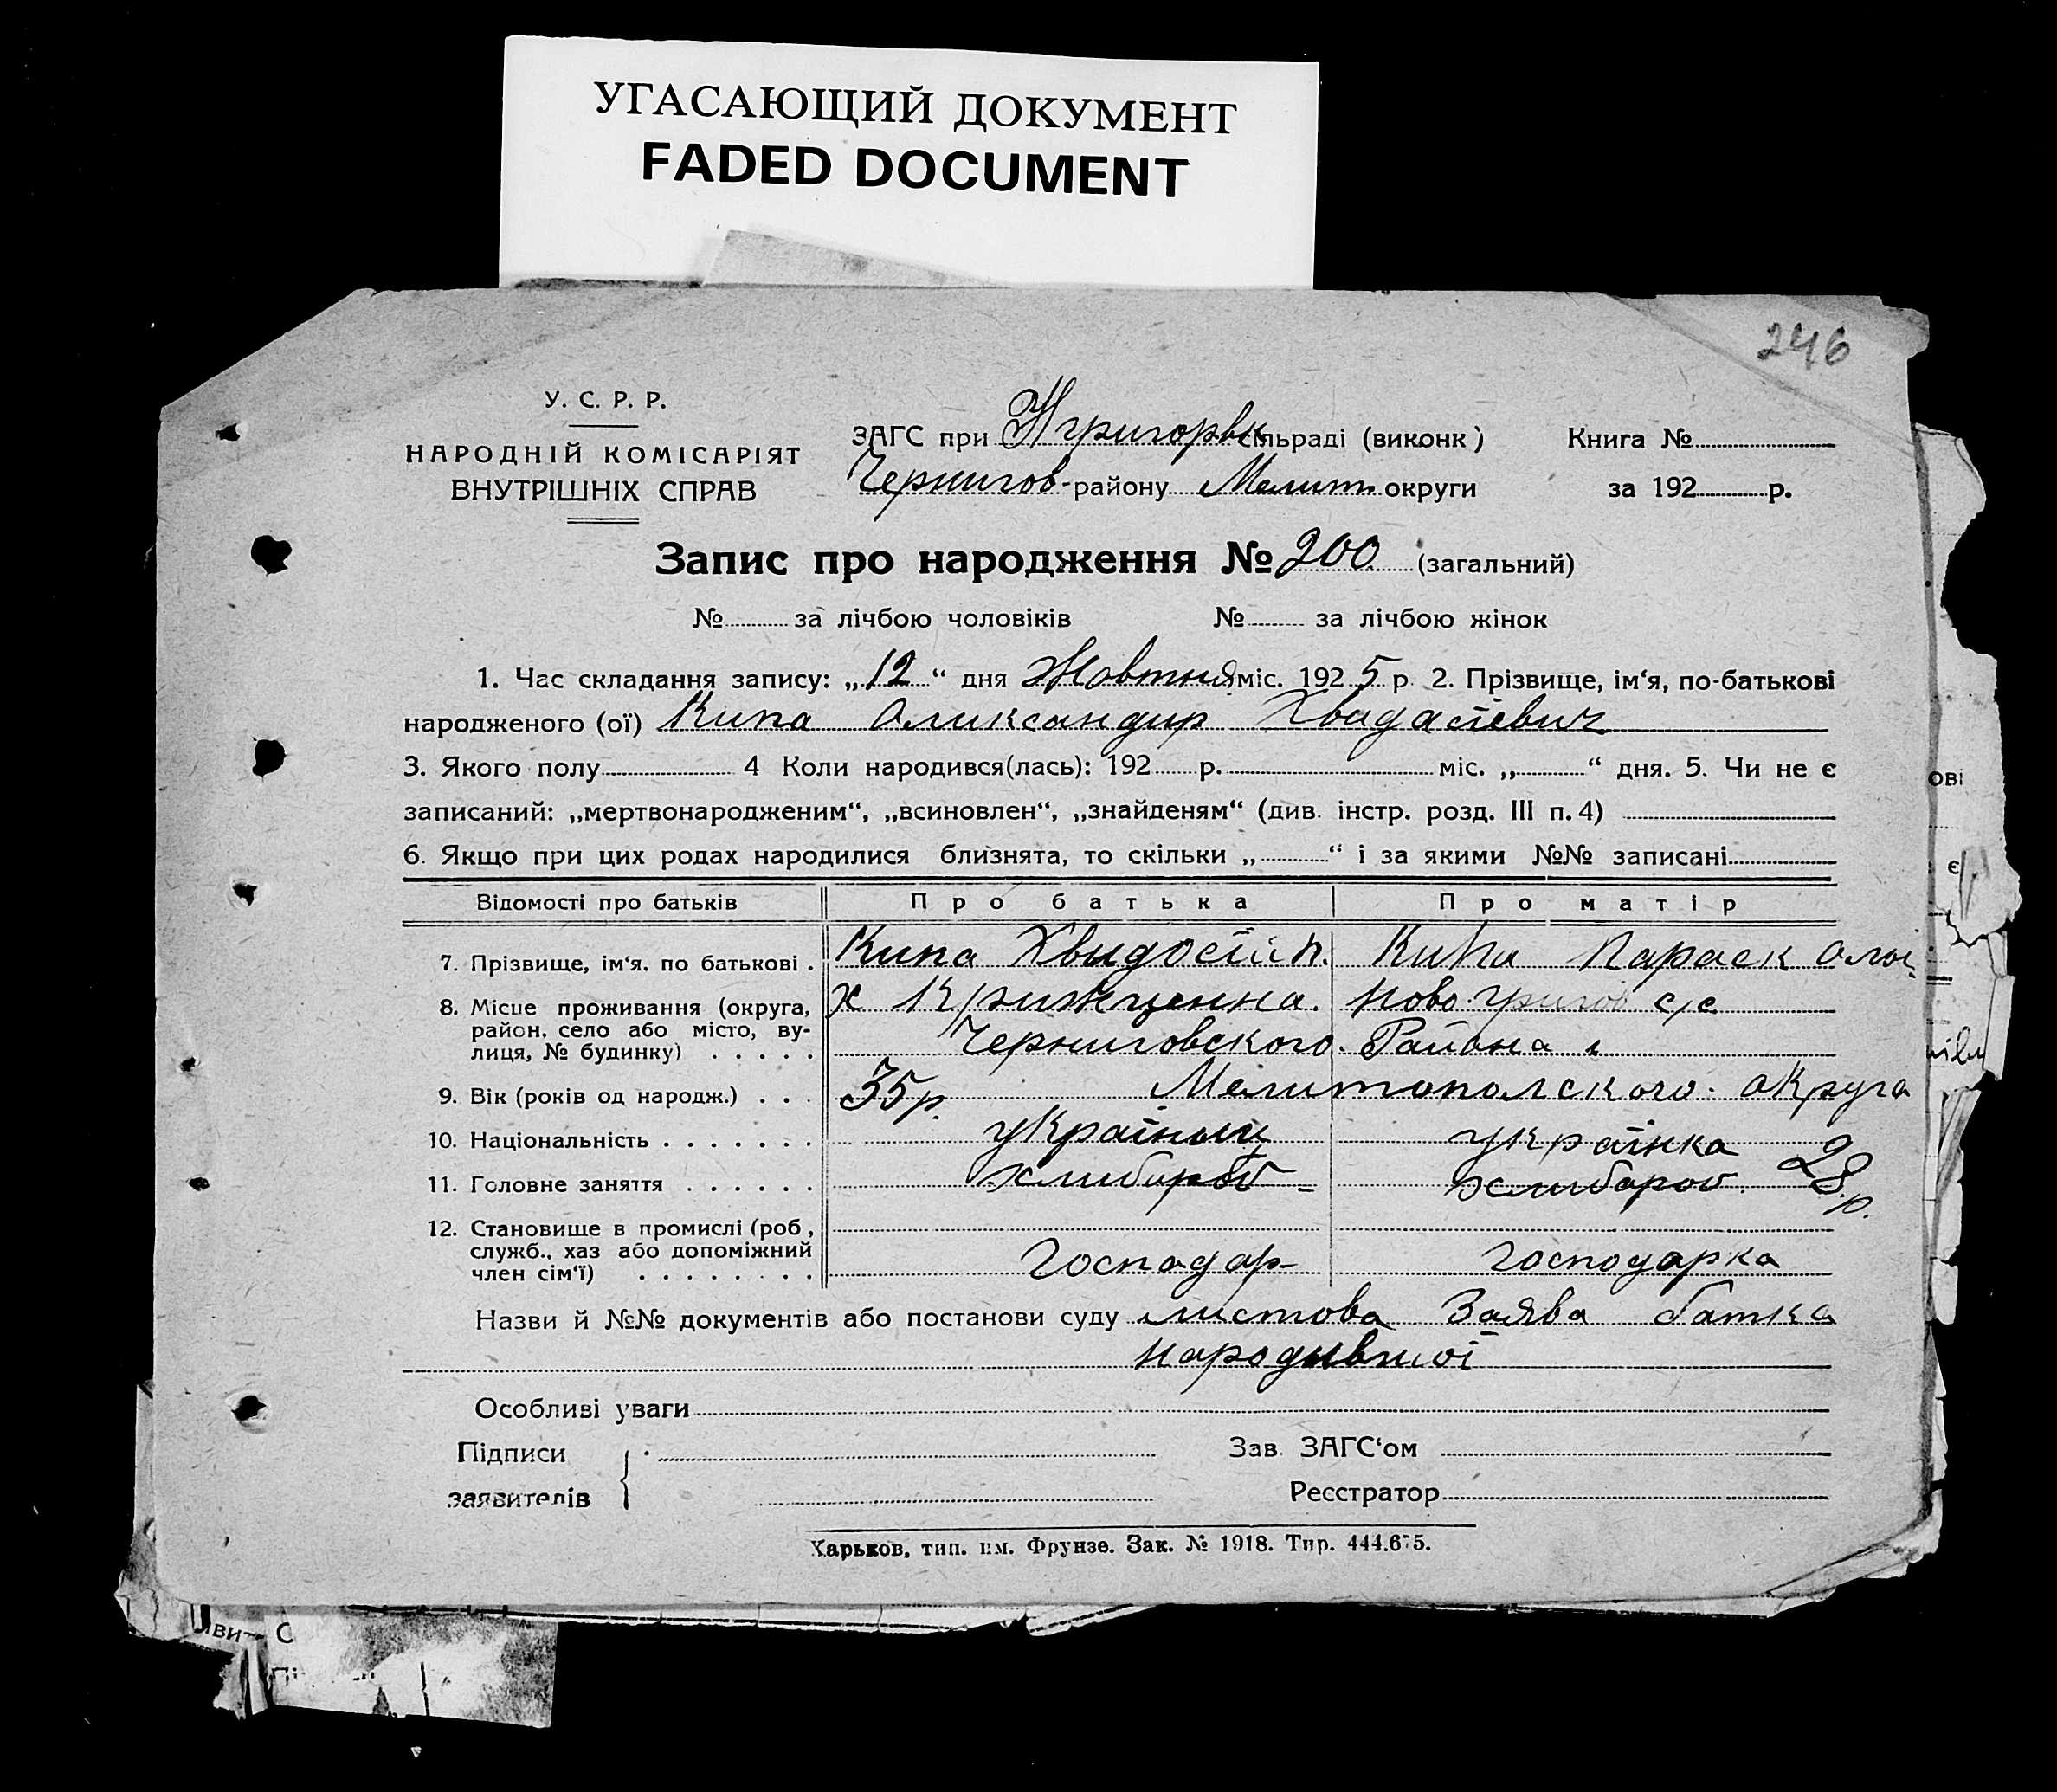 УГАСАЮЩИЙ ДОКУМЕНТ
FADED DOCUMENT
246
У. С. Р. Р.
НАРОДНІЙ КОМІСАРІЯТ
ВНУТРІШНІХ СПРАВ
ЗАГС при Нгригорвк сільраді (виконк) Книга №
Чернигов- району Мелит. округи за 192 р.
Запис про народження № 200 (загальний)
№ за лічбою чоловіків № за лічбою жінок
1. Час складання запису: „12“ дня Жовтня міс. 1925 р. 2. Прізвище, ім‘я, по-батькові
народженого (ої) Кипа Олександир Хвидасієвич
3. Якого полу 4 Коли народився(лась): 192 р. міс. „ “ дня. 5. Чи не є
записаний: „мертвонародженим“, „всиновлен“, „знайденям“ (див. інстр. розд. III п. 4)
6. Якщо при цих родах народилися близнята, то скільки „ “ і за якими №№ записані
Відомості про батьків Про батька Про матір
7. Прізвище, ім‘я, по батькові . Кипа Хвидосій П. Кипа Параск
8. Місце проживання (округа, х Крижценна. Ново-григов с/с
район, село або місто, ву-
лиця, № будинку) . . . . . Черниговского. Района
9. Вік (років од народж.) . . . 35р. Мелитополского. округа
10. Національність . . . . . . . украінець украінка 28 р.
11. Головне заняття . . . . . . хлибороб - хлибороб.
12. Становище в промислі (роб,
служб., хаз або допоміжний
член сім‘ї) . . . . . . . . Господар- господарка
Назви й №№ документів або постанови суду листова Заява батка
народившоі
Особливі уваги
Підписи Зав. ЗАГС‘ом
заявителів Реєстратор
Харьков, тип. им. Фрунзе. Зак. № 1918. Тир. 444.675.
ові
є